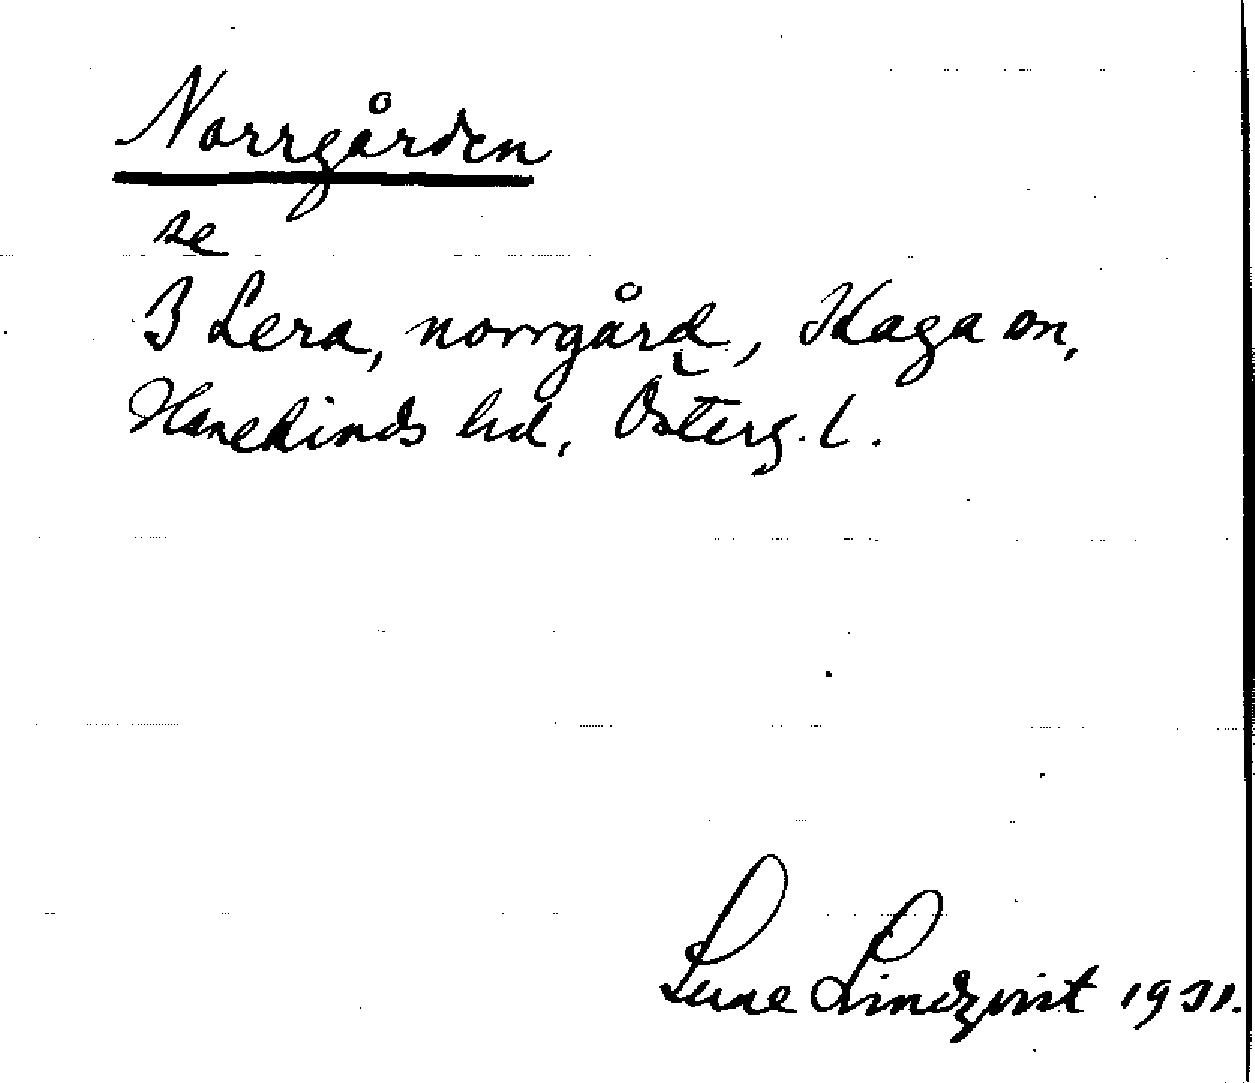 Norrgården
se
3 Lera, norrgård, Kaga sn,
Hanekinds hd, Österg. l.
Sune Lindqvist 1931.